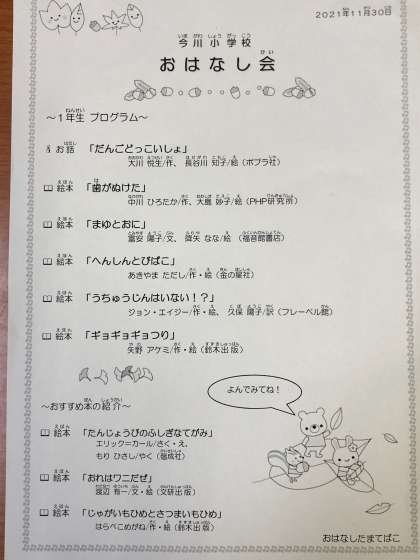 2021年11月30日
今川小学校
おはなし会
～1年生 プログラム～
お話 「だんごどっこいしょ」
大川 悦生/作、 長谷川 知子/絵 (ポプラ社)
絵本 「歯がぬけた」
中川 ひろたか/作、大島 妙子/絵 (PHP研究所)
絵本 「まゆとおに」
富安 陽子/文、 降矢 なな/絵 (福音館書店)
絵本 「へんしんとびばこ」
あきやま ただし/作・絵 (金の星社)
絵本 「うちゅうじんはいない！？」
ジョン・エイジー/作・絵、 久保 陽子/訳 (フレーベル館)
絵本 「ギョギョギョつり」
矢野 アケミ/作・絵 (鈴木出版)
よんでみてね！
～おすすめ本の紹介～
絵本 「たんじょうびのふしぎなてがみ」
エリック=カール/さく・え、
もり ひさし/やく (偕成社)
絵本 「おれはワニだぜ」
渡辺 有一/文・絵 (文研出版)
絵本 「じゃがいもひめとさつまいもひめ」
はらぺこめがね/作・絵 (鈴木出版)
おはなしたまてばこ